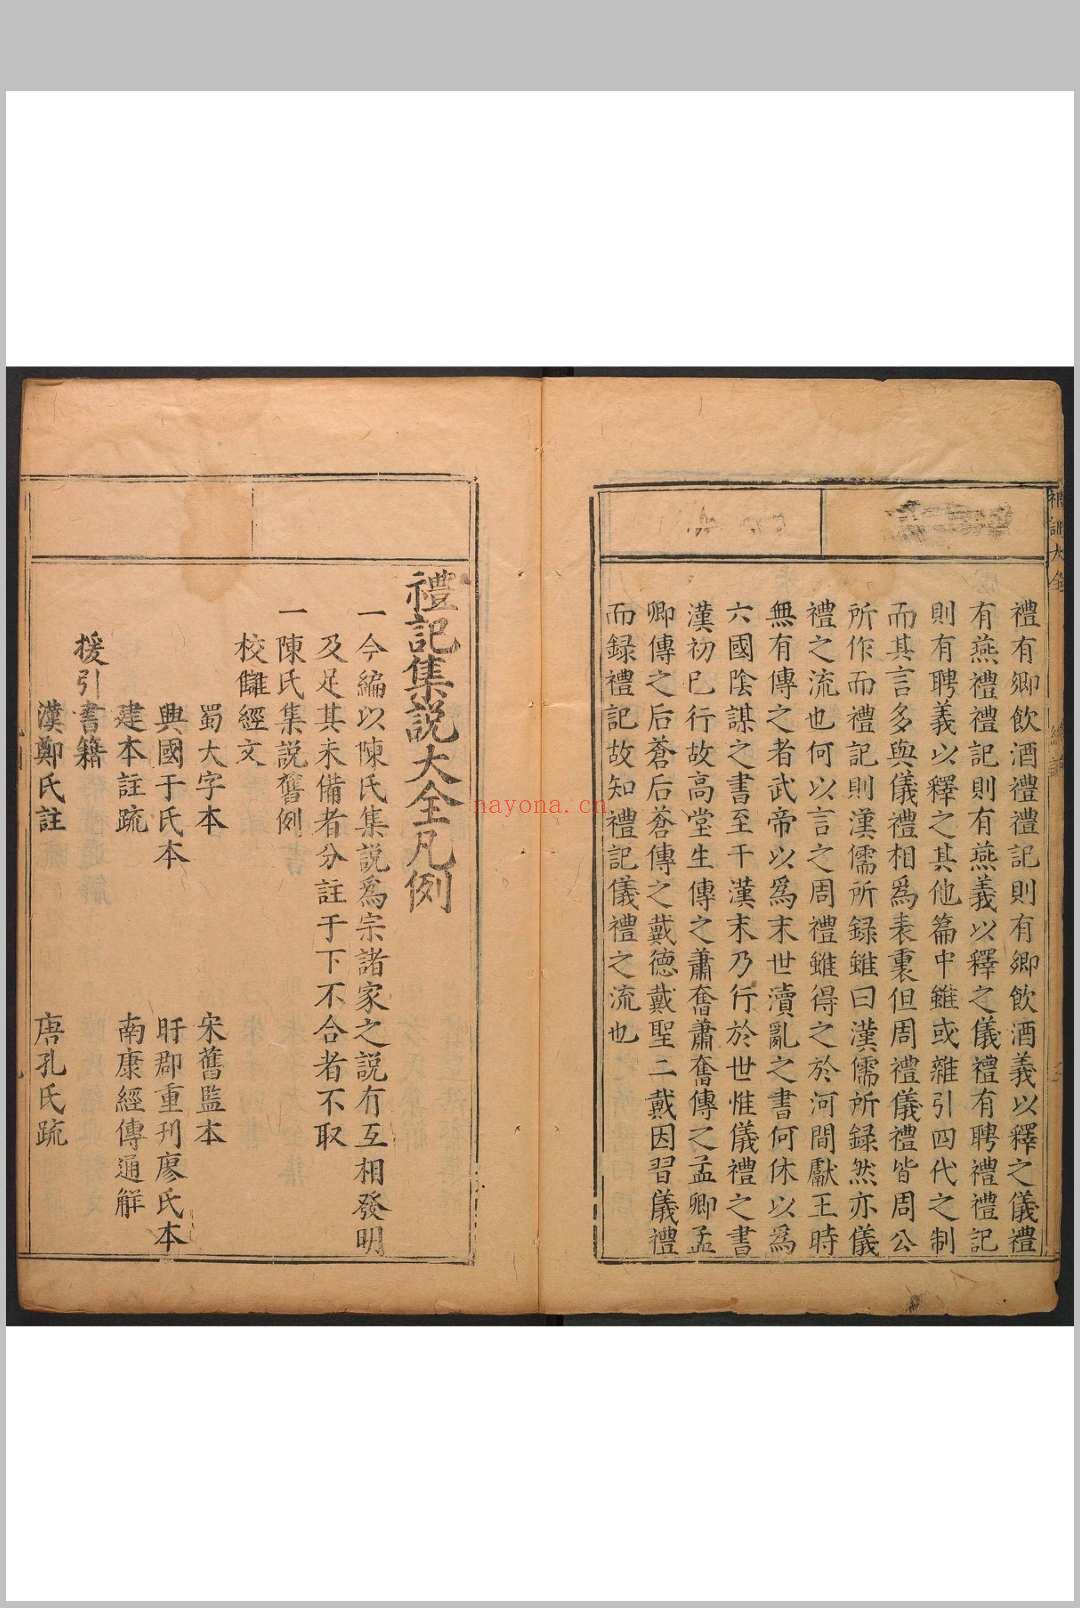 禮有鄉飲酒禮禮記則有鄉飲酒義以釋之儀禮
有燕禮禮記則有燕義以釋之儀禮有聘禮禮記
則有聘義以釋之其他篇中雖或雜引四代之制
而其言多與儀禮相爲表裏但周禮儀禮皆周公
所作而禮記則漢儒所録雖曰漢儒所録然亦儀
禮之流也何以言之周禮雖得之於河間獻王時
無有傳之者武帝以爲末世瀆亂之書何休以爲
六國陰謀之書至于漢末乃行於世惟儀禮之書
漢初已行故高堂生傳之蕭奮蕭奮傳之孟卿孟
卿傳之后蒼后蒼傳之戴德戴聖二戴因習儀禮
而録禮記故知禮記儀禮之流也
禮記集説大全凡例
一今編以陳氏集説爲宗諸家之説有互相發明
及足其未備者分註于下不合者不取
一陳氏集説舊例
校讎經文
蜀大字本 宋舊監本
興國于氏本 盱郡重刊廖氏本
建本註疏 南康經傳通解
援引書籍
漢鄭氏註 唐孔氏疏
nayona.cn